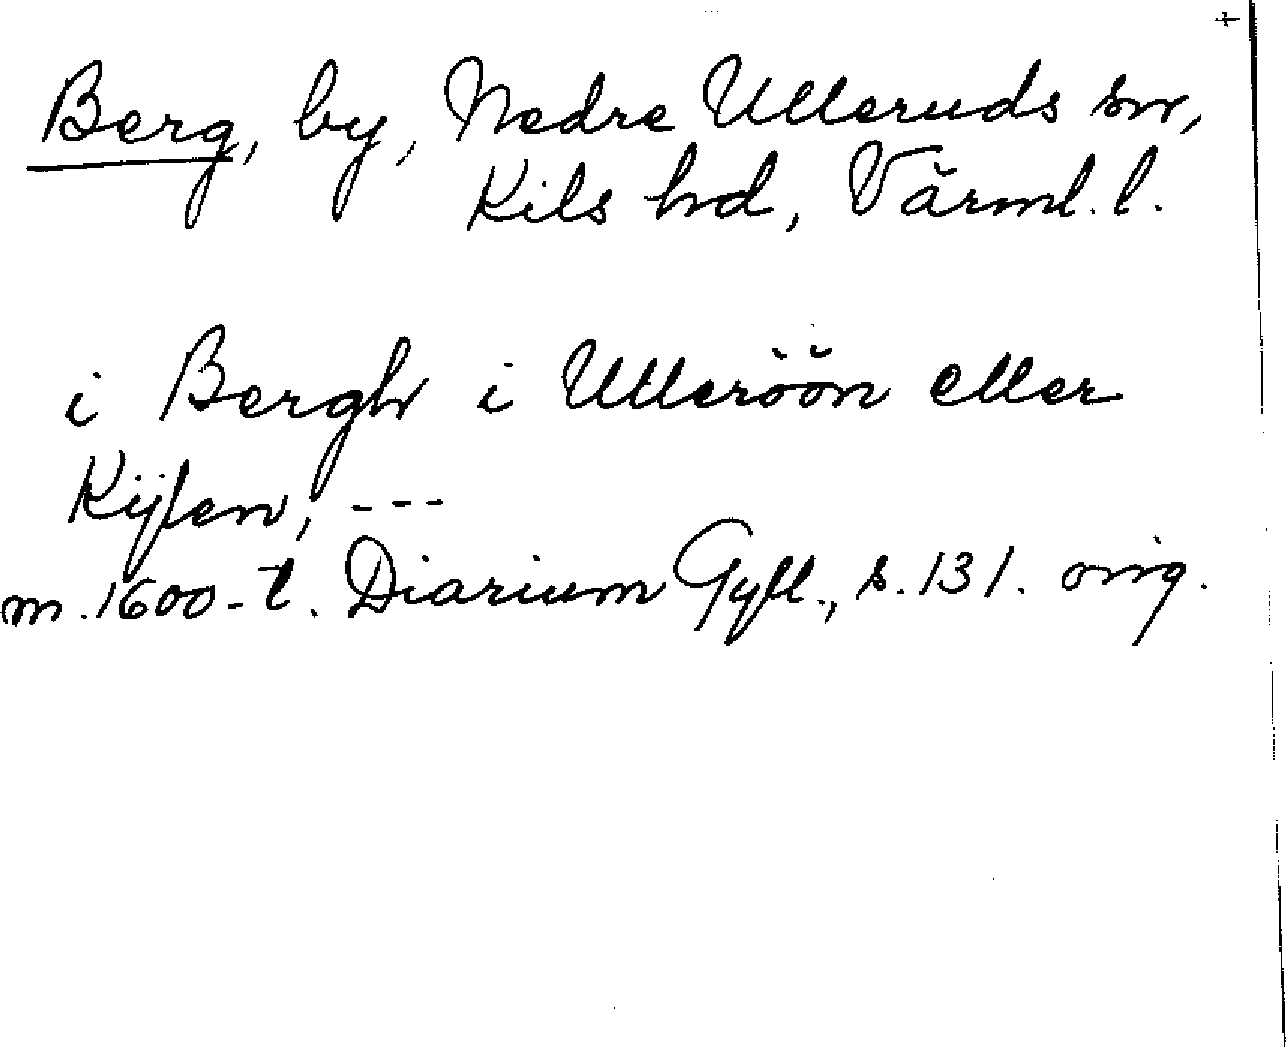 Berg, by, Nedre Ulleruds sn,
Kils hd, Värml. l.
i Bergh i Ulleröön eller
Kijlen, ---
m. 1600-t. Diarium Gyll., s. 131. orig.